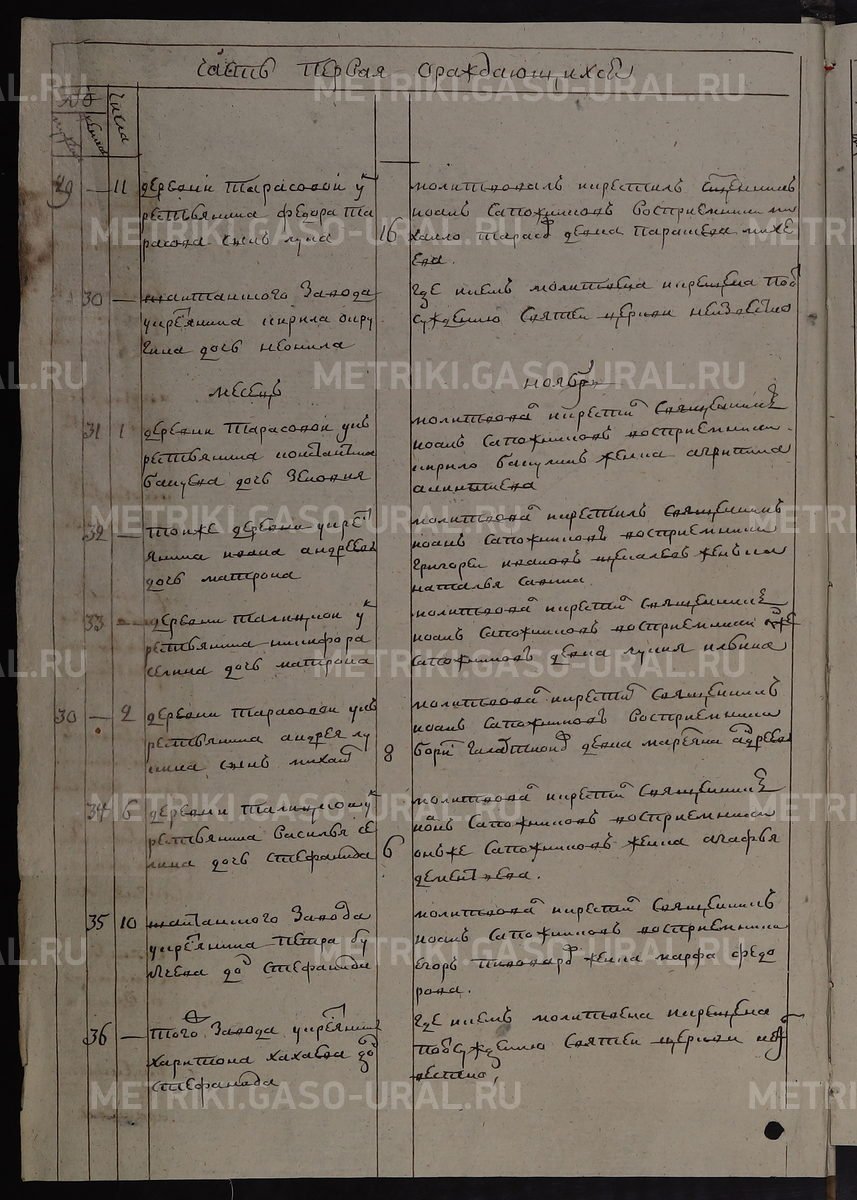 часть первая ораждающихся
№
числа
29 — 11 деревни тарасовой у к
рестьянина федора та
расова сынъ лука
16
молитвовалъ икрестилъ сщенникъ
иоанъ сапожниковъ восприемники ми
хаило тарасо девка парасковья михе
ева.
30 — шаитанского завода
укрестянина кирила окру
гина дочь неонила
где икемъ молитвена икрещена под
суждению святеи церкви неизвестно
месецъ
ноябрь
31 1 деревни тарасовой укъ
рестьянина констаньтина
бакуева дочь зеновия
молитвова икрести священникъ
иоанъ сапожниковъ восприемники
кирило бакулинъ женка агрипина
32 — тоиже деревни укрест
янина ивана андреева
дочь матрона
молитвова икрестилъ священникъ
иоанъ сапожниковъ восприемники
григореи ивановъ женъка
наталья савина.
33 — деревни талицкои у к
рестьянина никифора
селина дочь матрона
молитвова икрести священникъ
иоанъ сапожниковъ восприемники
сапожниковъ девка лукия ильина
30 — 2 деревни тарасовой укъ
рестьянина андрея лу
кина сынъ михаил
8
молитвова икрести священникъ
иоанъ сапожниковъ восприемники
девка марьяна андреева
34 6 деревни талицкои у к
рестьянина василья се
лина дочь стефанида
6
молитвова икрести священникъ
иоанъ сапожниковъ восприемники
онъже сапожниковъ женка агафья
дементьева.
35 10 шаитанского завода
укрестянина петра бу
дочь стефанида
молитвова икрести священникъ
иоанъ сапожниковъ восприемники
егоръ женка марфа федо
рова.
36 — того завода укрестянина
харитона хахаева дочь
стефанида
где икемъ молитвена икрещена
подсуждению святеи церкви неиз
вестно,
METRIKI.GASO-URAL.RU